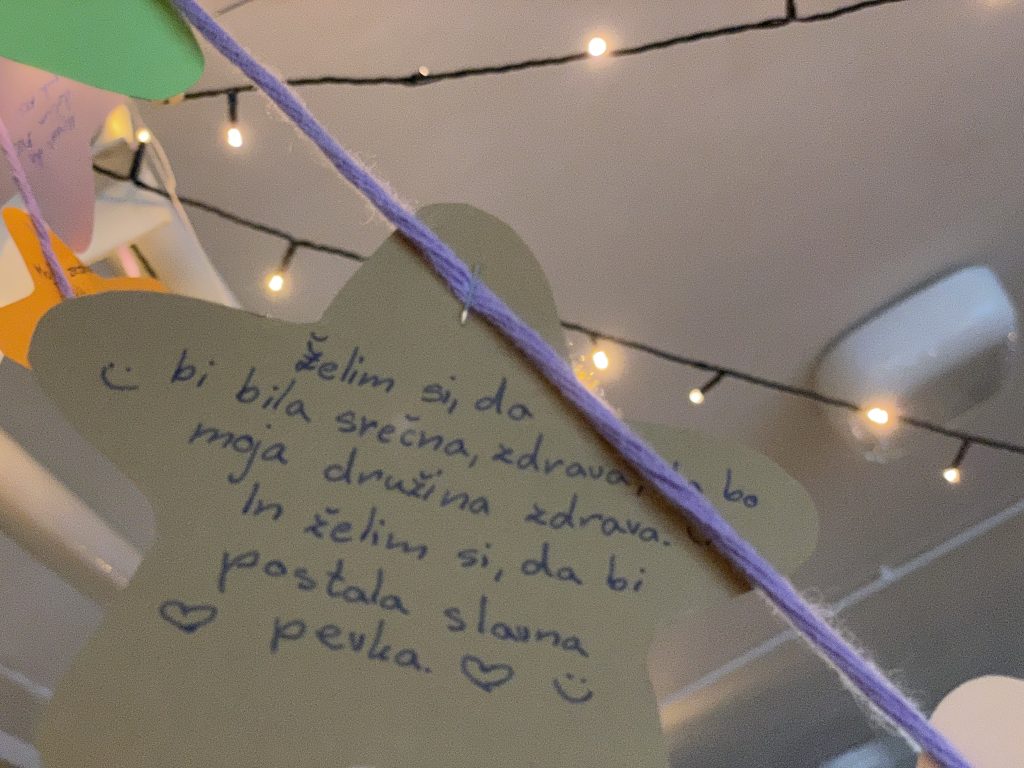 želim si, da
bi bila srečna, zdrava, bo
moja družina zdrava.
In želim si, da bi
postala slavna
pevka.